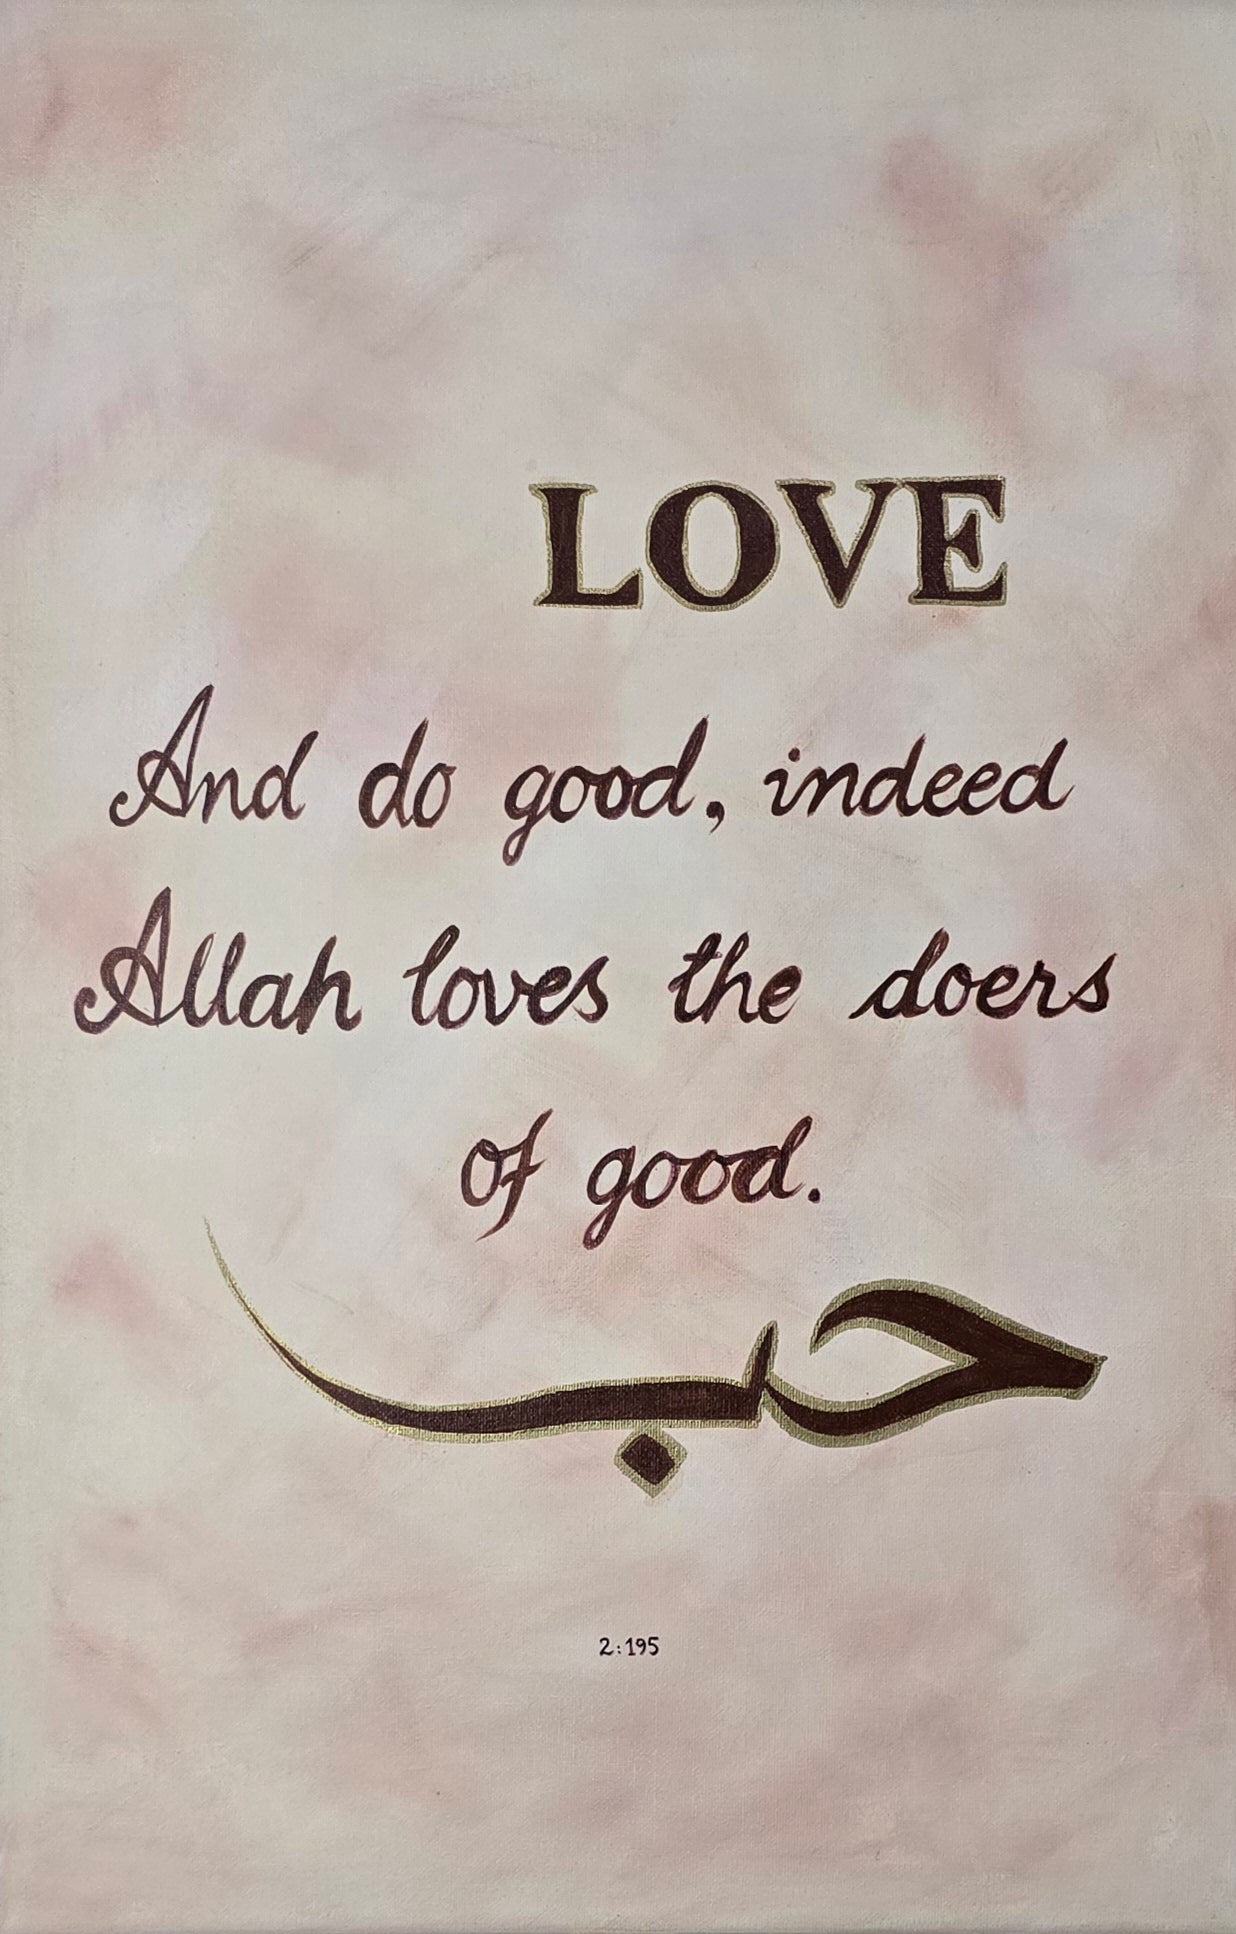 LOVE
And do good, indeed
Allah loves the doers
of good.
حب
2:195